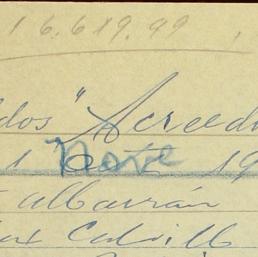 16.619.99
dos" Acreed
1 Nove 19
Albarrán
Calvillo